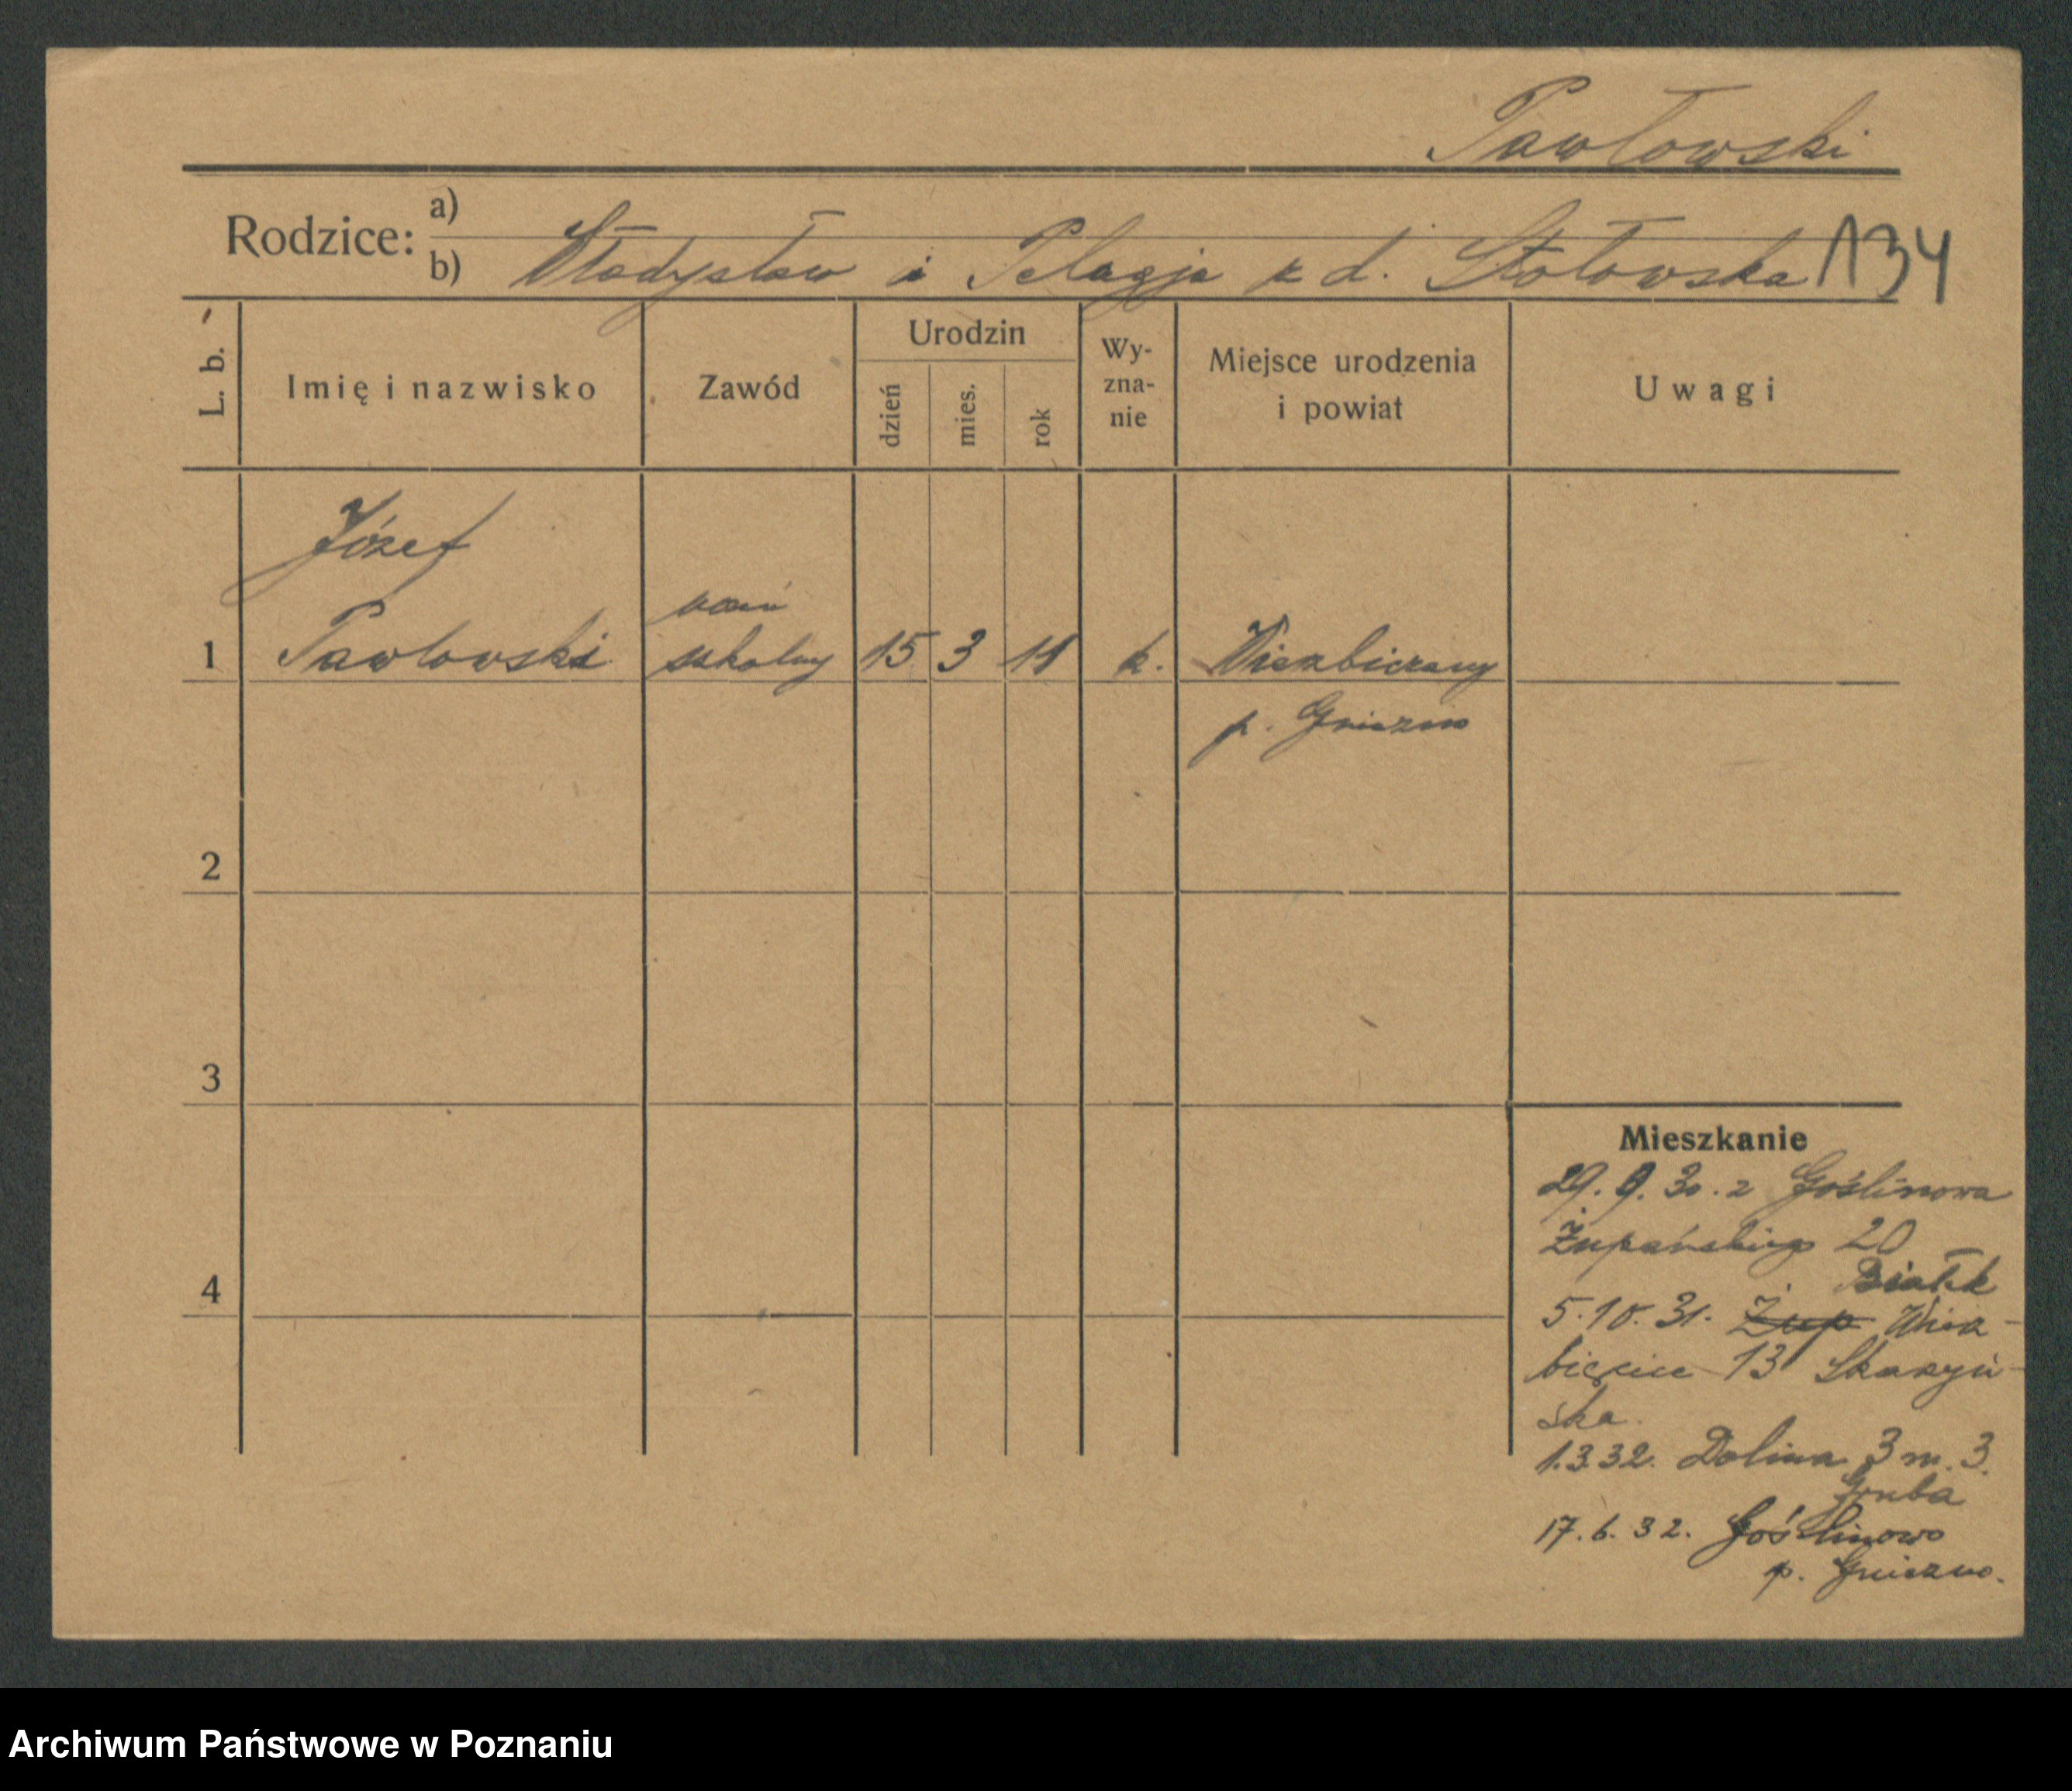 Pawłowski
Rodzice: a)
b) Władysław i Pelagja z d. Stołowska 134
L. b.
Imię i nazwisko
Zawód
Urodzin
dzień
mies.
rok
Wy-
zna-
nie
Miejsce urodzenia
i powiat
Uwagi
Józef
uczeń
1 Pawlowski szkolny 15 3 11 k. Wierzbiczany
p. Gniezno
2
3
4
Mieszkanie
29. 9. 30. z Goślinowa
Żupańskiego 20
Białek
5.10.31. Żup Wierz-
bięcice 13 Skarzyń-
ska.
1.3.32. Dolina 3 m. 3.
Gruba
17.6.32. Goślinowo
p. Gniezno.
Archiwum Państwowe w Poznaniu